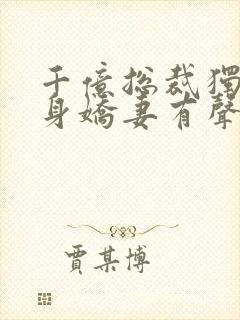 千億總裁獨
身嬌妻有聲
賈某博